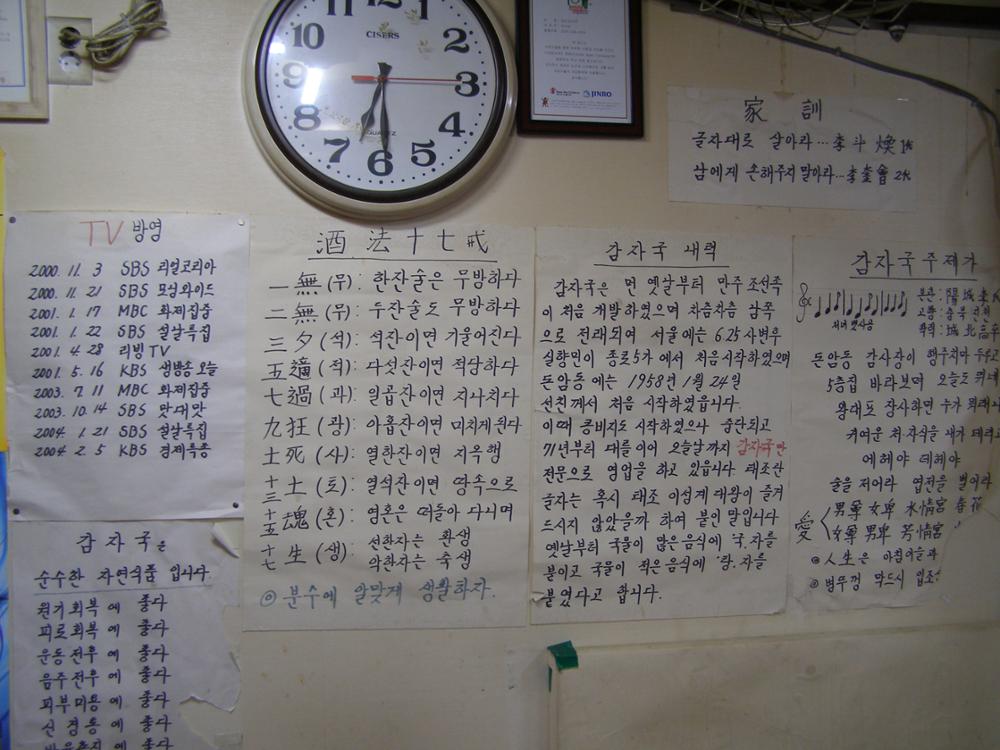 11 12 1
10 2
9 3
8 4
7 6 5
CISERS
QUARTZ
JINRO
家 訓
글자대로 살아라...李斗煥 1代
남에게 손해주지 말아라...李奎會 2代
TV 방영
2000. 11. 3 SBS 리얼코리아
2000. 11. 21 SBS 모닝와이드
2001. 1. 17 MBC 화제집중
2001. 1. 22 SBS 설날특집
2001. 4. 28 리빙TV
2001. 5. 16 KBS 생방송 오늘
2003. 7. 11 MBC 화제집중
2003. 10. 14 SBS 맛대맛
2004. 1. 21 SBS 설날특집
2004. 2. 5 KBS 경제특종
감자국은
순수한 자연식품 입니다.
원기회복에 좋다
피로회복에 좋다
운동전후에 좋다
음주전후에 좋다
피부미용에 좋다
신경통에 좋다
에 좋다
酒法十七戒
一無 (무): 한잔술은 무방하다
二無 (무): 두잔술도 무방하다
三夕 (석): 석잔이면 기울어진다
五適 (적): 다섯잔이면 적당하다
七過 (과): 일곱잔이면 지나치다
九狂 (광): 아홉잔이면 미치게 된다
十死 (사): 열한잔이면 지옥행
十三土 (토): 열석잔이면 땅속으로
十五魂 (혼): 영혼은 떠돌아 다니며
十七生 (생): 선한자는 환생
악한자는 축생
◎ 분수에 알맞게 생활하자.
감자국 내력
감자국은 먼 옛날부터 만주 조선족
이 처음 개발하였으며 차츰차츰 남쪽
으로 전래되여 서울에는 6.25사변후
실향민이 종로5가에서 처음시작하였으며
돈암동에는 1958년 1월 24일
선친께서 처음 시작하였읍니다.
이때 콩비지도 시작하였으나 중단되고
71년부터 대를이어 오늘날까지 감자국만
전문으로 영업을 하고 있읍니다 태조산
글자는 혹시 태조 이성계 대왕이 즐겨
드시지 않았을까 하여 붙인 말입니다
옛날부터 국물이 많은음식에 '국'자를
붙이고 국물이 적은음식에 '탕'자를
붙였다고 합니다.
감자국주제가
본관: 陽城李
고향: 충북
학력: 城北高
돈암동 감자탕이
5층집 바라보며 오늘도
왕대포 장사하면 누가
귀여운 처자식을 내가
에헤야 데헤야
술을 저어라 엽전을 벌어라
愛 男尊女卑 水情宮 春花
女尊男卑 芳情宮
◎人生은 아침이슬과